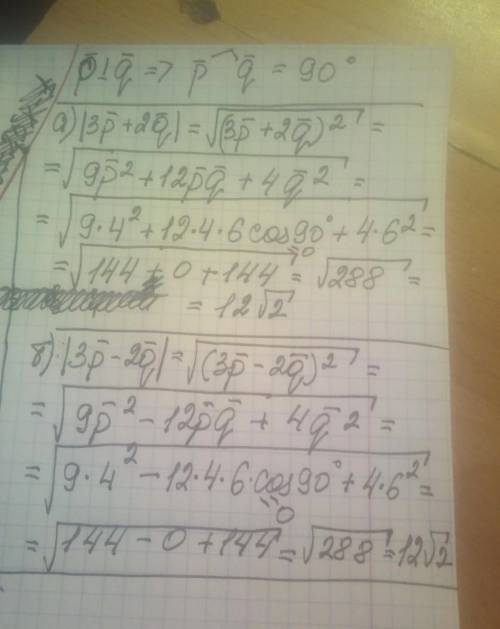 p̄⊥q̄ => p̄^q̄ = 90°
а) |3p̄+2q̄| = √(3p̄+2q̄)² =
= √9p̄²+12p̄q̄+4q̄² =
= √9·4²+12·4·6cos90°+4·6² =
=0
= √144+0+144 = √288 =
= 12√2
б) |3p̄-2q̄| = √(3p̄-2q̄)² =
= √9p̄²-12p̄q̄+4q̄² =
= √9·4²-12·4·6·cos90°+4·6² =
=0
= √144-0+144 = √288 = 12√2